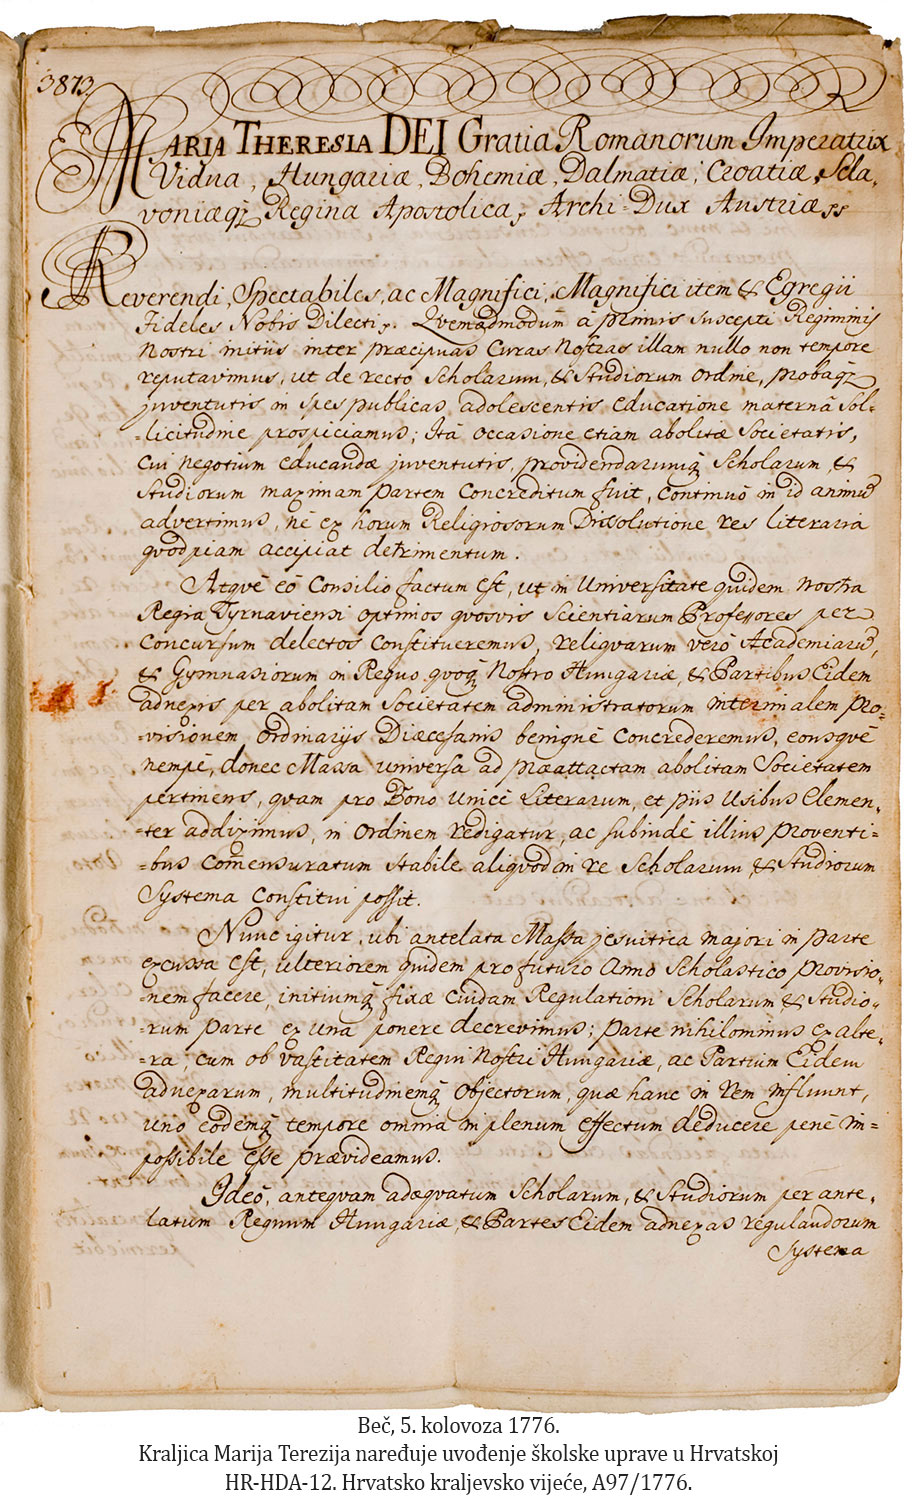 3873
MARIA THERESIA DEI Gratia Romanorum Imperatrix
Vidua, Hungariæ, Bohemiæ, Dalmatiæ, Croatiæ, Scla-
voniæq₃ Regina Apostolica, Archi-Dux Austriæ
Reverendi, Spectabiles, ac Magnifici, Magnifici item & Egregii
Fideles Nobis Dilecti. Qvemadmodum à primis suscepti Regiminis
Nostri initiis inter præcipuas Curas Nostras illam nullo non tempore
reputavimus, ut de recto Scholarum, & Studiorum Ordine, probaq₃
juventutis in spes publicas adolescentis educatione maternâ Sol-
-licitudine prospiciamus; Ità occasione etiam abolitæ Societatis,
Cui negotium educandæ juventutis, providendarumq₃ Scholarum &
Studiorum maximam partem Concreditum fuit, Continuò in id animū
advertimus, nè ex horum Religiosorum Dissolutione res literaria
qvodpiam accipiat detrimentum.
Atqvè eò Consilio factum est, ut in Universitate quidem nostra
Regia Tyrnaviensi optimos qvosvis Scientiarum Professores per
Concursum delectos Constitueremus, reliqvarum verò Academiarū,
& Gymnasiorum in Regno qvoq₃ Nostro Hungariæ, & Partibus Eidem
adnexis per abolitam Societatem administratorum interimalem Pro-
-visionem Ordinarijs Diæcesanis benignè Concrederemus, eousqvè
nempè, donec Massa universa ad præattactam abolitam Societatem
pertinens, qvam pro Bono unicè Literarum, et piis Usibus Clemen-
-ter addiximus, in Ordinem redigatur, ac subindè illius proventi-
-bus Com̄ensuratum stabile aliqvod in re Scholarum & Studiorum
Systema Constitui possit.
Nunc igitur, ubi antelata Massa jesuitica majori in parte
excussa est, ulteriorem quidem pro futuro Anno Scholastico provisio-
nem facere, initiumq₃ fixæ Cuidam Regulationi Scholarum & Studio-
-rum parte ex una ponere decrevimus; parte nihilominus ex alte-
-ra, cum ob vastitatem Regni Nostri Hungariæ, ac Partium Eidem
adnexarum, multitudinemq₃ Objectorum, quæ hanc in Rem influunt,
uno eodemq₃ tempore omnia in plenum effectum deducere penè im=
possibile Esse prævideamus.
Ideò, anteqvam adæqvatum Scholarum, & Studiorum per ante-
latum Regnum Hungariæ, & Partes Eidem adnexas regulandorum
Systema
Beč, 5. kolovoza 1776.
Kraljica Marija Terezija naređuje uvođenje školske uprave u Hrvatskoj
HR-HDA-12. Hrvatsko kraljevsko vijeće, A97/1776.